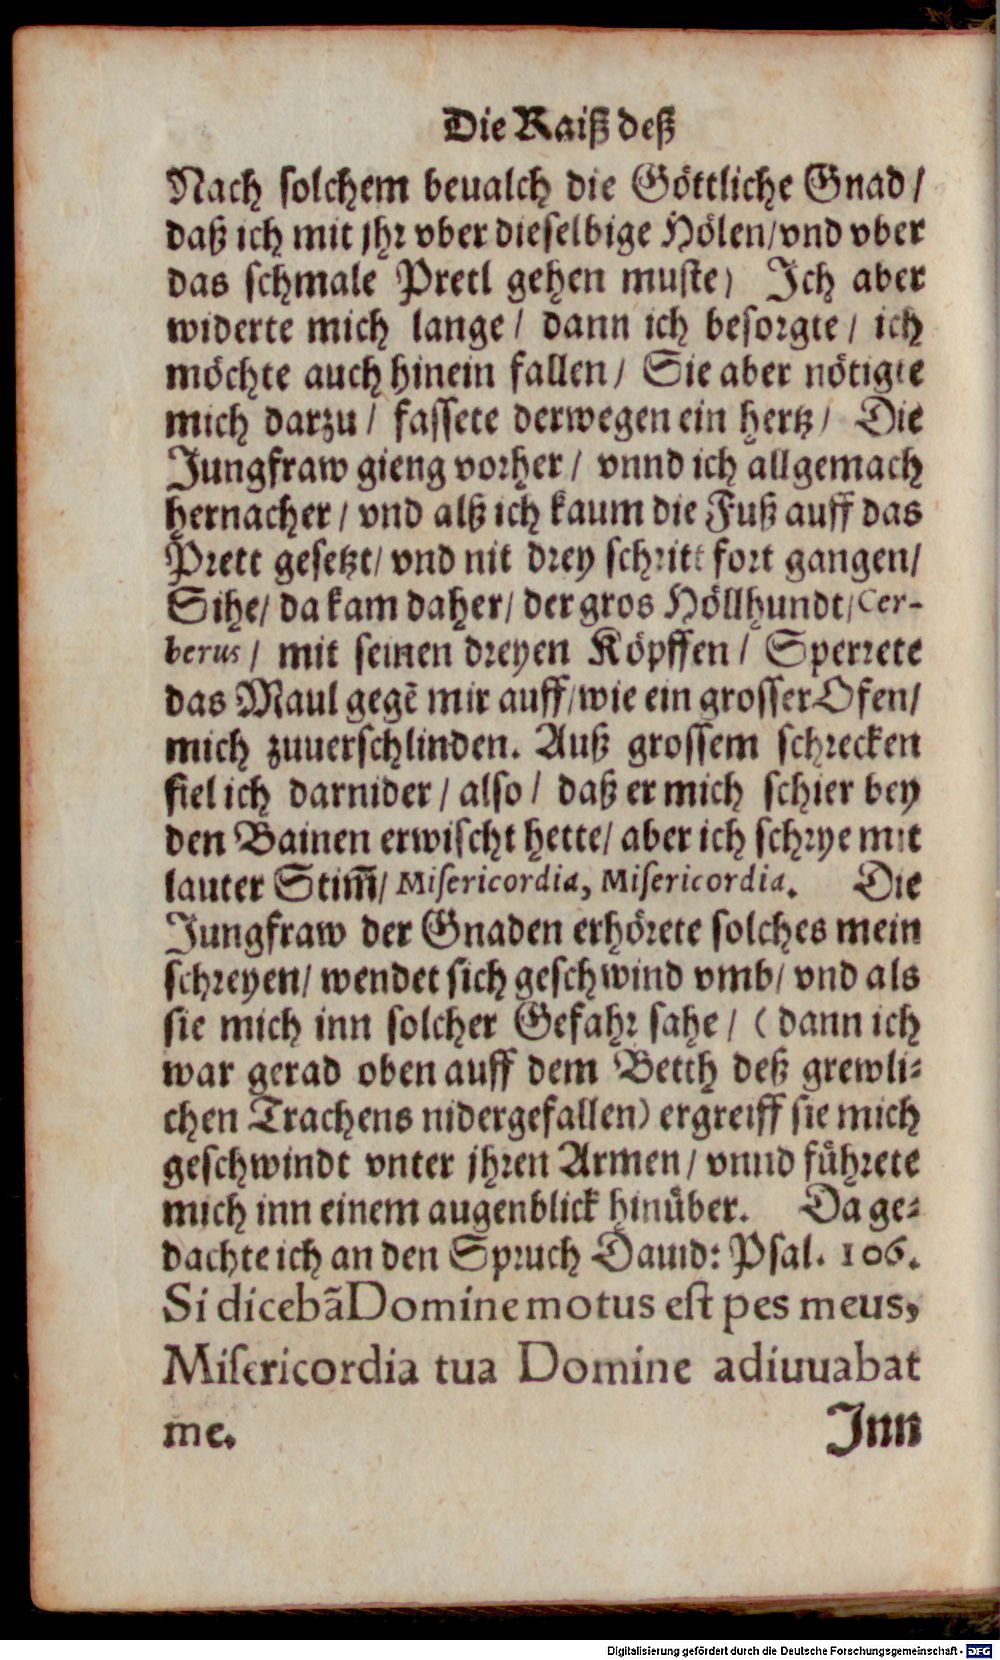 Die Raiß deß
Nach solchem beualch die Göttliche Gnad /
daß ich mit jhr vber dieselbige Hölen/vnd vber
das schmale Pretl gehen muste) Ich aber
widerte mich lange / dann ich besorgte / ich
möchte auch hinein fallen / Sie aber nötigte
mich darzu / fassete derwegen ein hertz / Die
Jungfraw gieng vorher / vnnd ich allgemach
hernacher / vnd alß ich kaum die Fuß auff das
Prett gesetzt/ vnd nit drey schritt fort gangen/
Sihe/ da kam daher/ der gros Höllhundt/Cer-
berus / mit seinen dreyen Köpffen / Sperrete
das Maul gegẽ mir auff/wie ein grosser Ofen/
mich zuuerschlinden. Auß grossem schrecken
fiel ich darnider / also / daß er mich schier bey
den Bainen erwischt hette/ aber ich schrye mit
lauter Stim̃/ Misericordia, Misericordia. Die
Jungfraw der Gnaden erhörete solches mein
schreyen/ wendet sich geschwind vmb/ vnd als
sie mich inn solcher Gefahr sahe / ( dann ich
war gerad oben auff dem Betth deß grewli-
chen Trachens nidergefallen) ergreiff sie mich
geschwindt vnter jhren Armen / vnnd führete
mich inn einem augenblick hinüber. Da ge-
dachte ich an den Spruch Dauid: Psal. 106.
Si dicebãDomine motus est pes meus,
Misericordia tua Domine adiuuabat
me. Inn
Digitalisierung gefördert durch die Deutsche Forschungsgemeinschaft - DFG